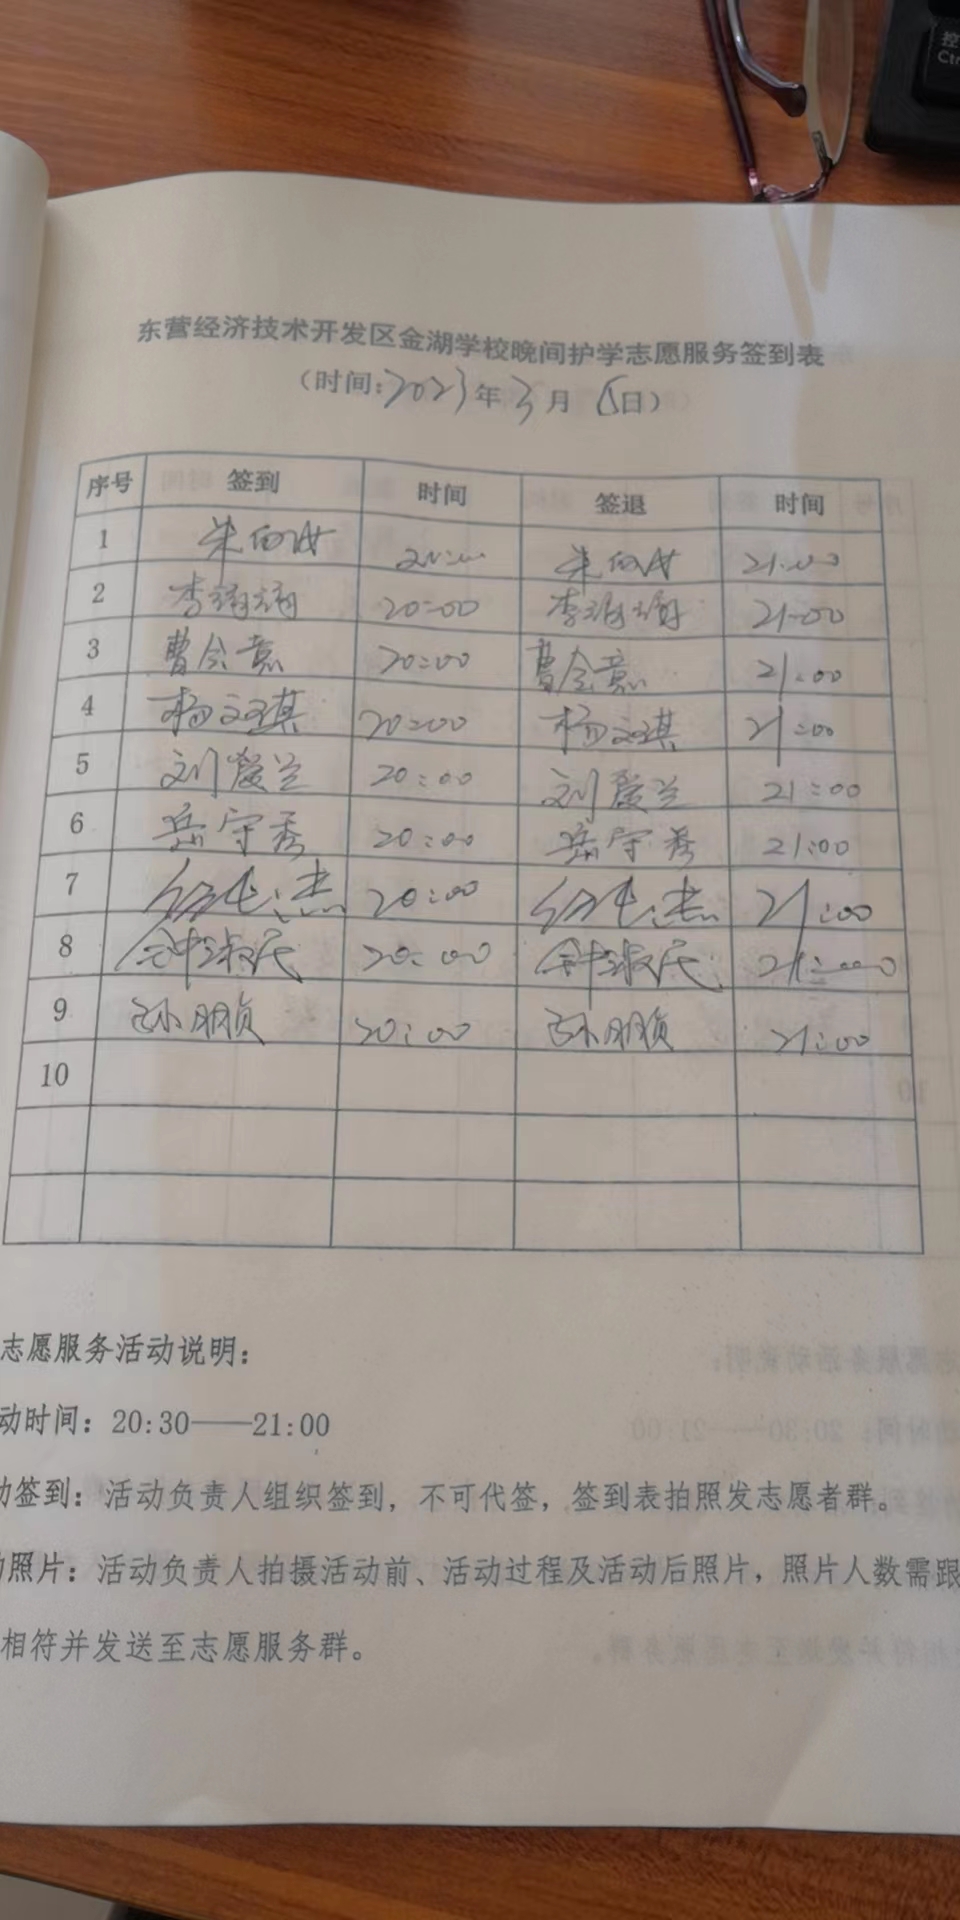 控
Ctr
东营经济技术开发区金湖学校晚间护学志愿服务签到表
(时间:2023年3月 日)
序号 签到 时间 签退 时间
1 21:00
2 李 20:00 李 21:00
3 曹令意 20:00 曹令意 21:00
4 杨文琪 20:00 杨文琪 21:00
5 刘爱兰 20:00 刘爱兰 21:00
6 岳守秀 20:00 岳守秀 21:00
7 20:00 21:00
8 钟淑民 20:00 钟淑民 21:00
9 孙朋贞 20:00 孙朋贞 21:00
10
志愿服务活动说明:
动时间: 20:30——21:00
动签到: 活动负责人组织签到, 不可代签, 签到表拍照发志愿者群。
照片: 活动负责人拍摄活动前、活动过程及活动后照片, 照片人数需跟
相符并发送至志愿服务群。